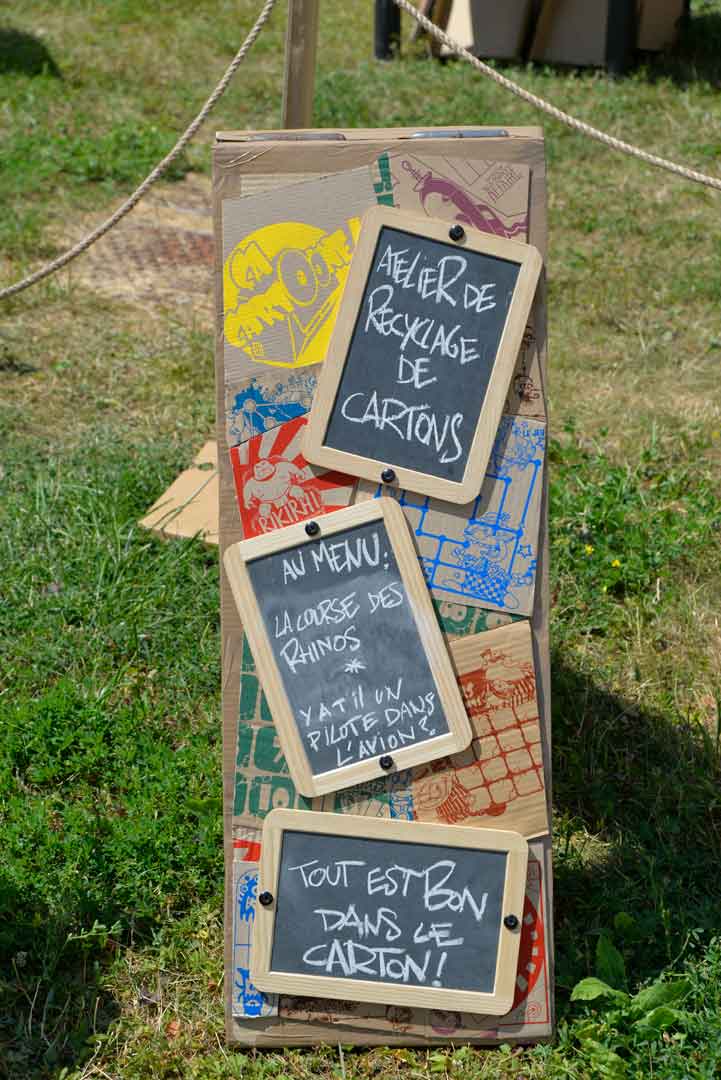 ATELIER DE
RECYCLAGE
DE
CARTONS
AU MENU:
LA COURSE DES
RHINOS
*
Y A T'IL UN
PILOTE DANS
L'AVION?
RIKIRHI
TOUT EST BON
DANS LE
CARTON!